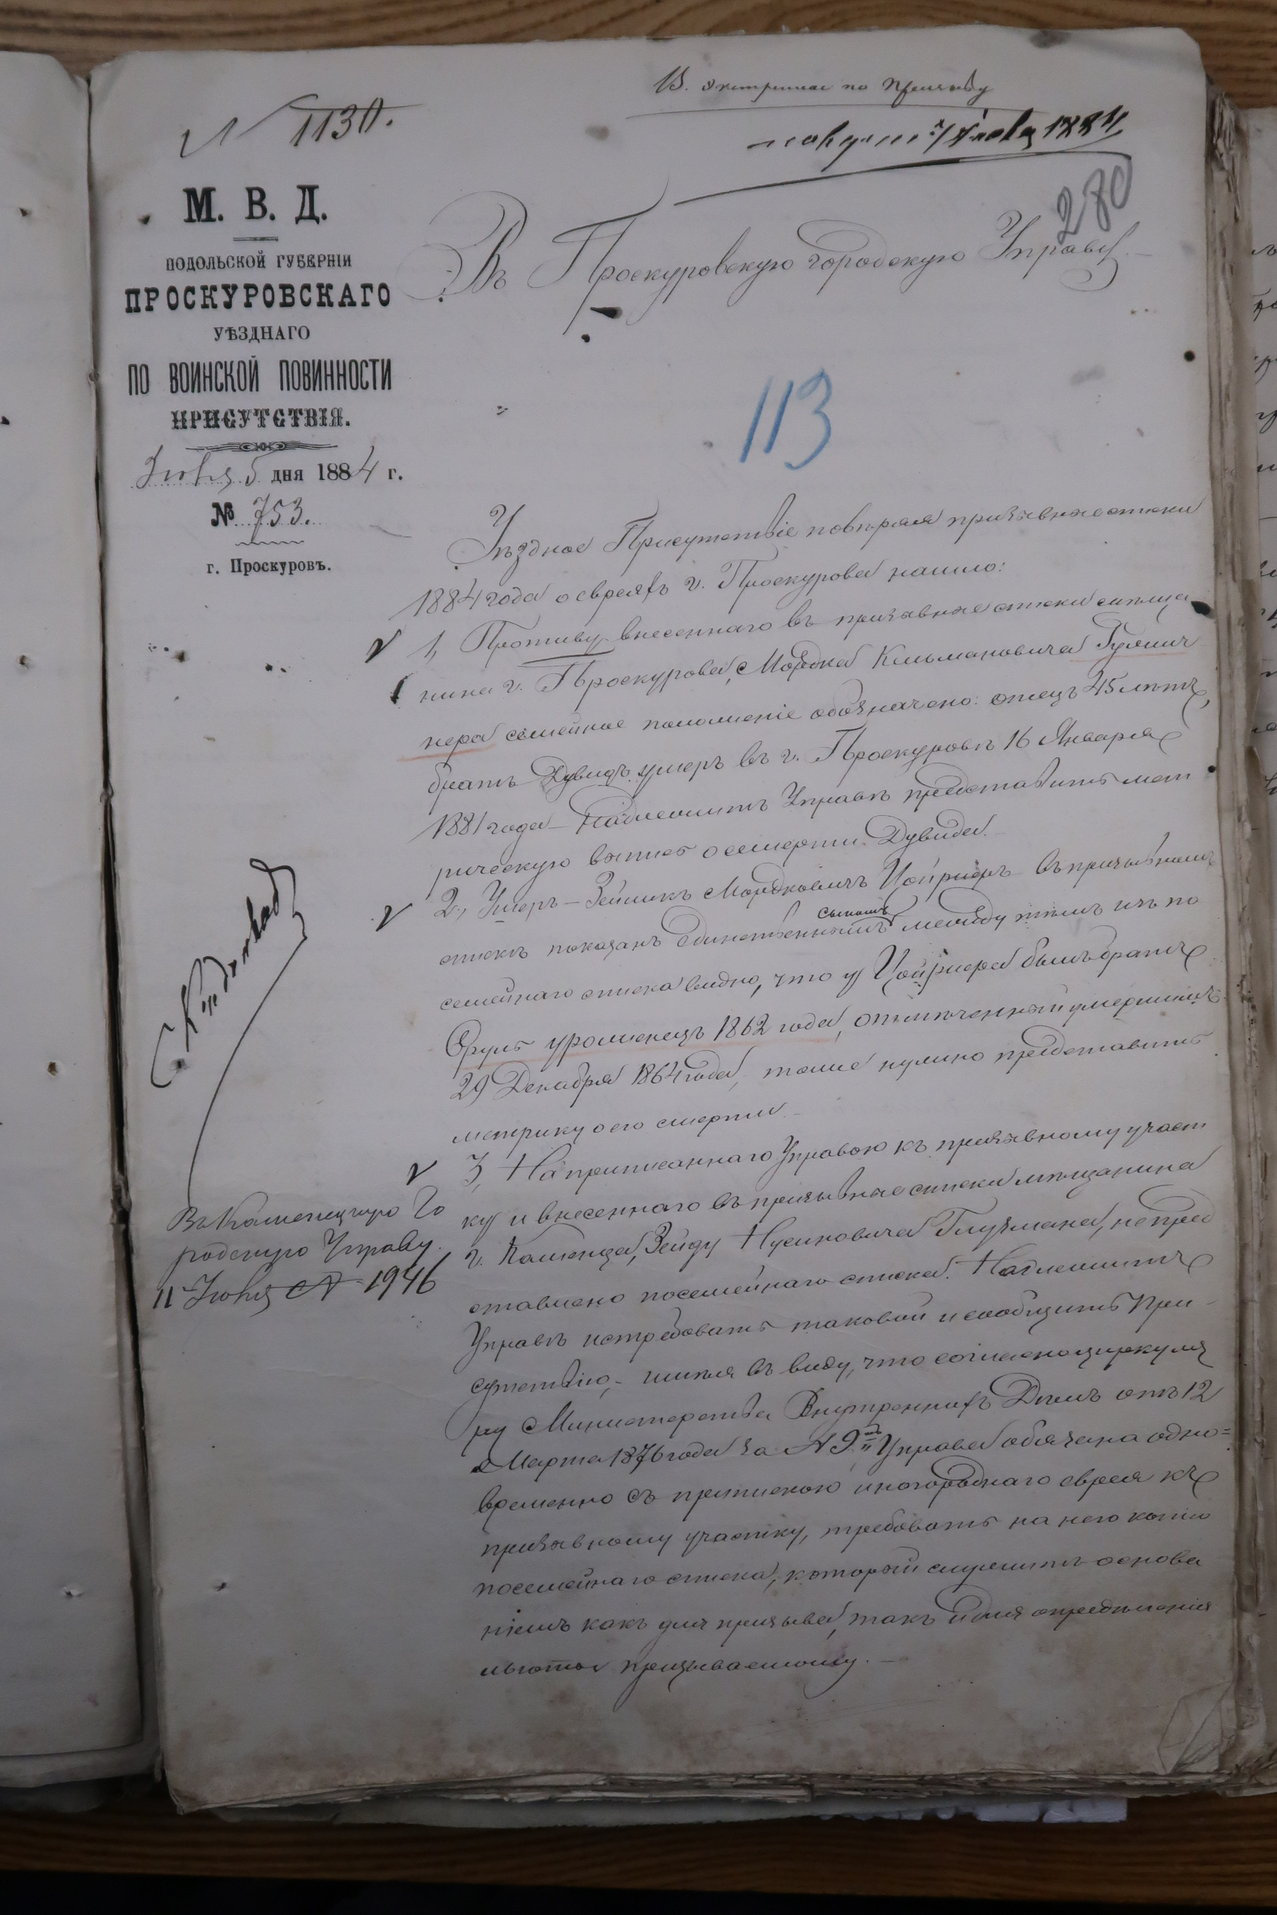 В. экстренное по призыву
№ 1130.
получ 7 Июня 1884
280
М. В. Д.
ПОДОЛЬСКОЙ ГУБЕРНІИ
ПРОСКУРОВСКАГО
УѢЗДНАГО
ПО ВОИНСКОЙ ПОВИННОСТИ
ПРИСУТСТВІЯ.
Іюня 5 дня 1884 г.
№ 753.
г. Проскуровъ.
Въ Проскуровскую городскую Управу.
113
Уѣздное Присутствіе повѣряя призывные списки
1884 года о евреяхъ г. Проскурова нашло:
1, Противу внесеннаго въ призывные списки мѣща
нина г. Проскурова, Мордка Кильмановича
нера семейное положеніе обозначено: отецъ 45 лѣтъ,
братъ Дувидъ умеръ въ г. Проскуровѣ 16 Января
1881 года – Надлежитъ Управѣ представить мет
рическую выпись о смерти Дувида. –
2, Умеръ – Зейликъ Мордковичъ Цойрнеръ въ призывномъ
спискѣ показанъ единственнымъ сыномъ между тѣмъ изъ по
семейнаго списка видно, что у Цойрнера былъ братъ
Сруль уроженецъ 1862 года, отмѣченный умершимъ
29 Декабря 1864 года, тоже нужно представить
метрику о его смерти. –
3, На приписаннаго Управою къ призывному участ
ку и внесеннаго въ призывные списки мѣщанина
г. Каменца, Зейду Нусиновича Глузмана, не пред
ставлено посемейнаго списка. Надлежитъ
Управѣ истребовать таковой и сообщить При
сутствію, – имѣя въ виду, что согласно циркуля
ру Министерства Внутреннихъ Дѣлъ отъ 12
Марта 1876 года за № 9, Управа обязана одно=
временно съ припискою иногороднаго еврея къ
призывному участку, требовать на него копію
посемейнаго списка, который служитъ основа
ніемъ какъ для призыва, такъ и для опредѣленія
льготы призываемому. –
Въ Каменецкую Го
родскую Управу
11 Іюня № 1946